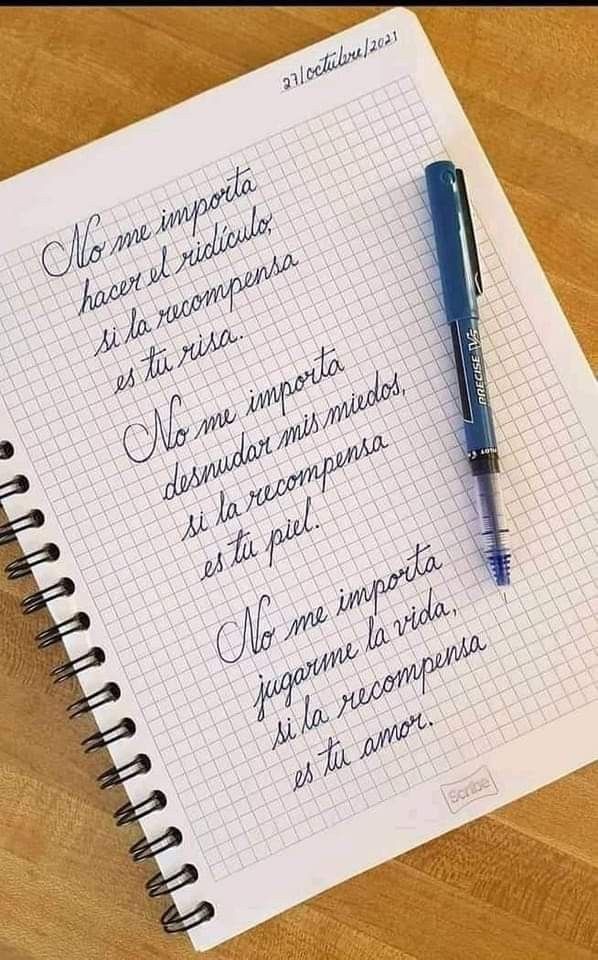 27/octubre/2021
No me importa
hacer el ridículo,
si la recompensa
es tu risa.
No me importa
desnudar mis miedos,
si la recompensa
es tu piel.
No me importa
jugarme la vida,
si la recompensa
es tu amor.
PRECISE V5
PILOT
Scribe